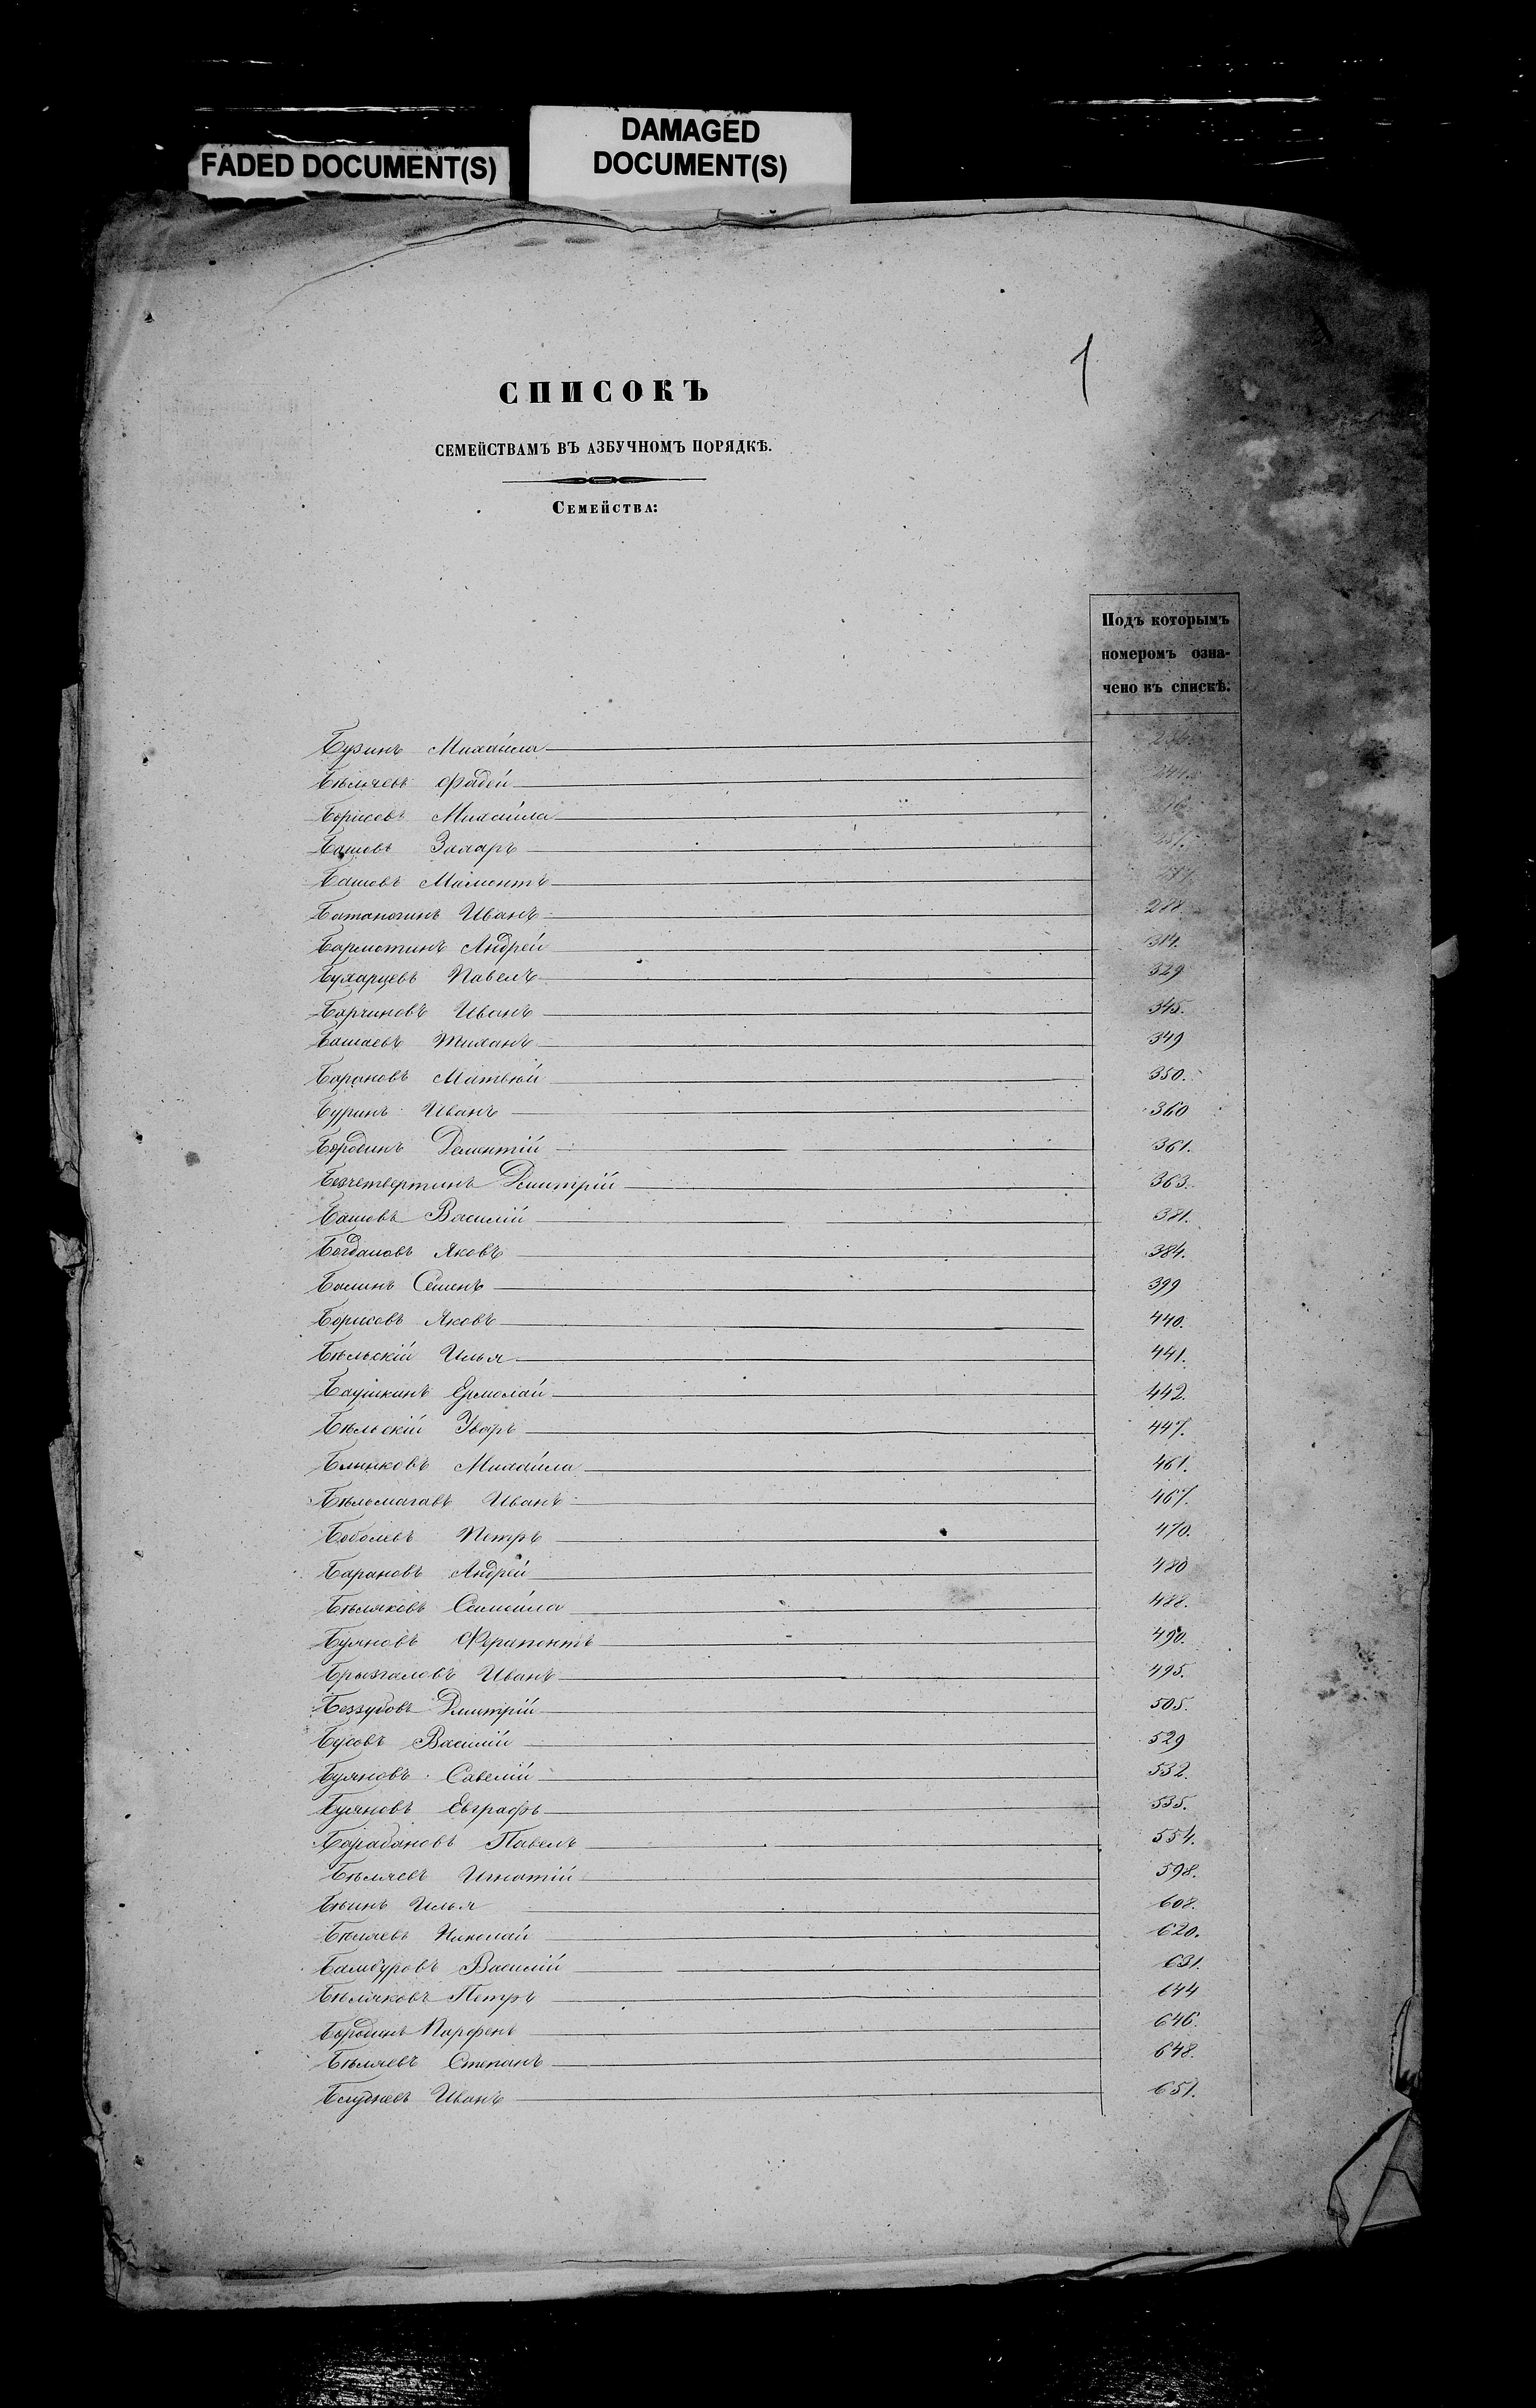 FADED DOCUMENT(S)
DAMAGED
DOCUMENT(S)
1
СПИСОКЪ
СЕМЕЙСТВАМЪ ВЪ АЗБУЧНОМЪ ПОРЯДКѢ.
СЕМЕЙСТВА:
Подъ которымъ
номеромъ озна-
чено въ спискѣ.
Бузинъ Михайла
Бѣляевъ Фадей
Борисовъ Михайла
Башовъ Захаръ
Башовъ Мамонтъ
Иванъ 288.
Андрей 314.
Бухарцевъ Павелъ 329
Иванъ 345.
349
Барановъ Матвѣй 350.
Буринъ Иванъ 360
Бородинъ Дементій 361.
Безчетвертинъ Дмитрій 363.
Башовъ Василій 381.
Богдановъ Яковъ 384.
Семенъ 399
Борисовъ Яковъ 440.
Бѣльскій Илья 441.
Баушкинъ Ермолай 442.
Бѣльскій Уваръ 447.
Блинковъ Михайла 461.
Иванъ 467.
Боболевъ Петръ 470.
Барановъ Андрей 480
Бѣляковъ Самойла 488.
Буяновъ Ферапонтъ 490.
Брызгаловъ Иванъ 495.
Беззубовъ Дмитрій 505.
Бусовъ Василій 529
Буяновъ Савелій 532.
Буяновъ Евграфъ 535.
Барабановъ Павелъ 554.
Бѣляевъ Игнатій 598.
Илья 608.
Бѣляевъ Николай 620.
Балбуровъ Василій 631.
Бѣляковъ Петръ 644
Бородинъ Парфенъ 646.
Бѣляевъ Степанъ 648.
Иванъ 651.